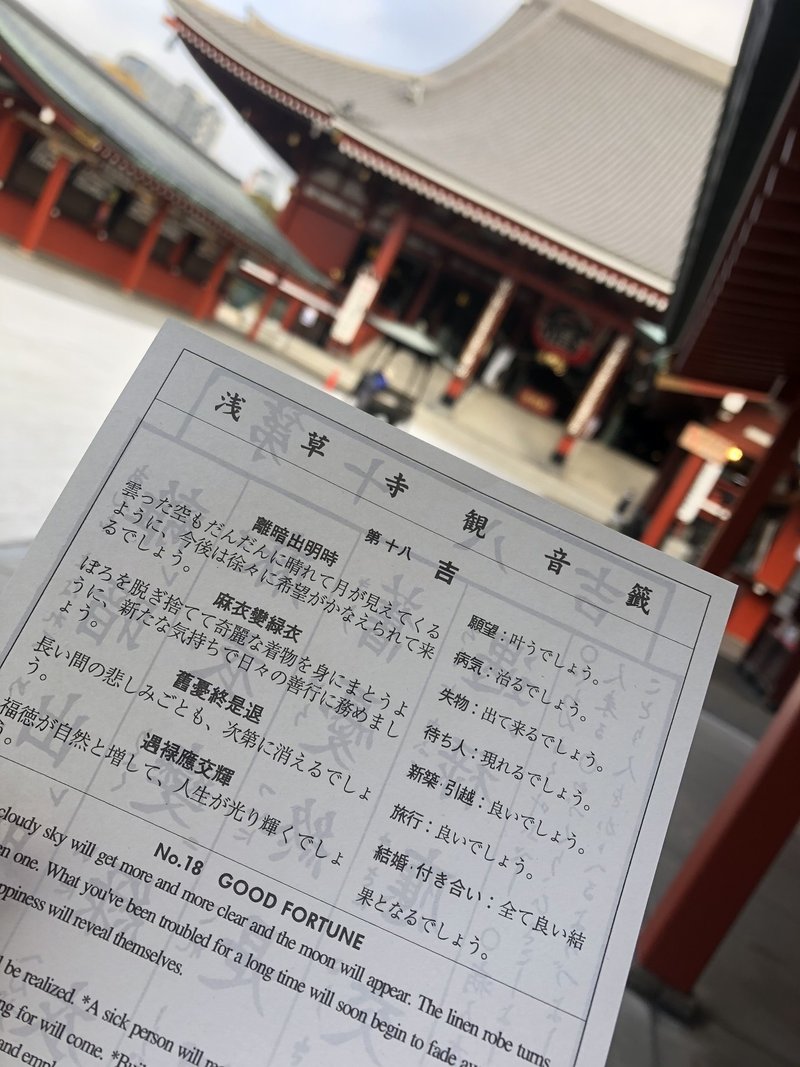 浅草寺観音籤
第十八 吉
離暗出明時
雲った空もだんだんに晴れて月が見えてくる
ように、今後は徐々に希望がかなえられて来
るでしょう。
麻衣變緑衣
ぼろを脱ぎ捨てて奇麗な着物を身にまとうよ
うに、新たな気持ちで日々の善行に務めまし
ょう。
舊憂終是退
長い間の悲しみごとも、次第に消えるでしょ
う。
遇禄應交輝
福徳が自然と増して、人生が光り輝くでしょ
う。
願望：叶うでしょう。
病気：治るでしょう。
失物：出て来るでしょう。
待ち人：現れるでしょう。
新築・引越：良いでしょう。
旅行：良いでしょう。
結婚・付き合い：全て良い結
果となるでしょう。
No.18 GOOD FORTUNE
cloudy sky will get more and more clear and the moon will appear. The linen robe turns
en one. What you've been troubled for a long time will soon begin to fade
ppiness will reveal themselves.
be realized. *A sick person will
ng for will come.
and